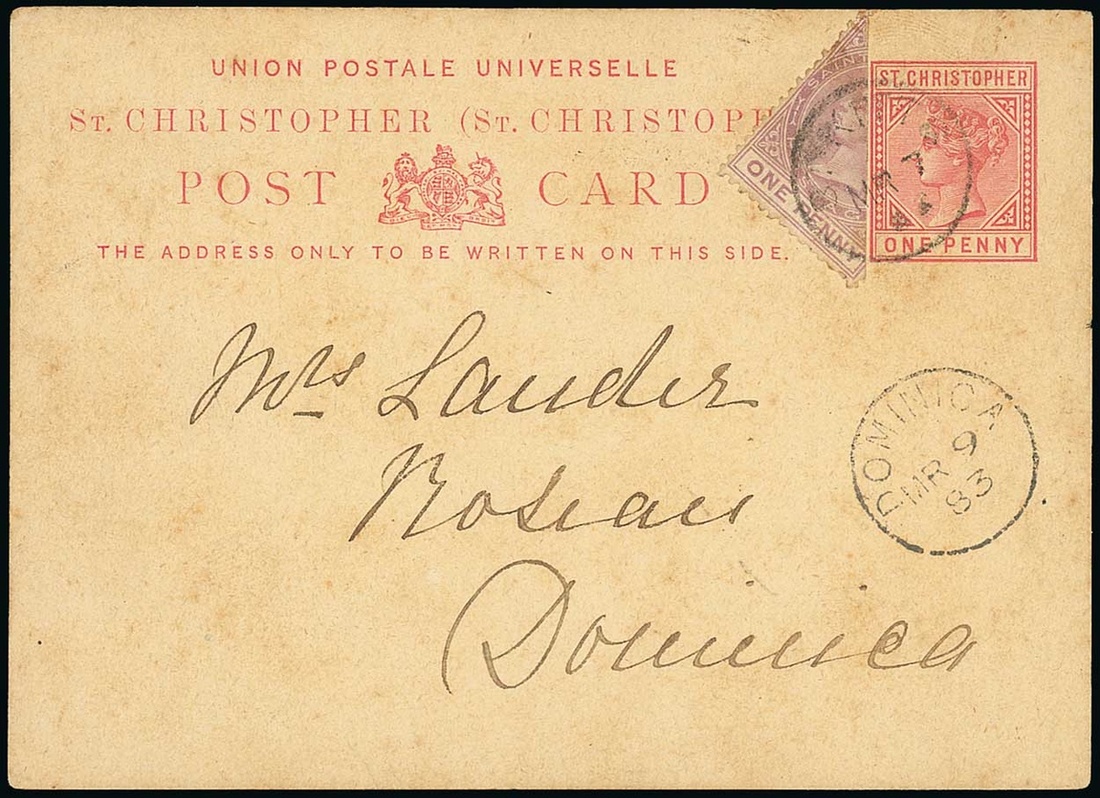 UNION POSTALE UNIVERSELLE
ST. CHRISTOPHER (ST. CHRISTOPH
POST CARD
THE ADDRESS ONLY TO BE WRITTEN ON THIS SIDE.
SAINT
ONE PENNY
ST. CHRISTOPHER
ONE PENNY
MR 7
Mrs Lauder
Roseau
Dominica
DOMINICA
MR 9
83